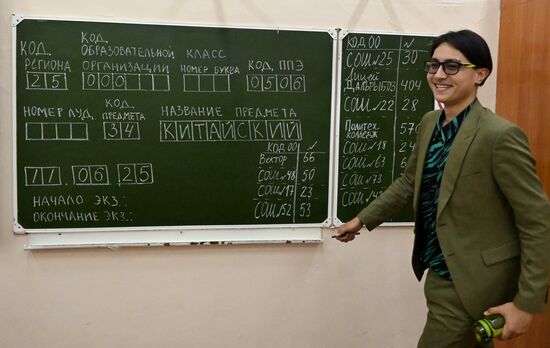 КОД РЕГИОНА
25
КОД ОБРАЗОВАТЕЛЬНОЙ ОРГАНИЗАЦИИ
0000
КЛАСС
НОМЕР БУКВА
КОД ППЭ
0506
НОМЕР АУД.
КОД ПРЕДМЕТА
34
НАЗВАНИЕ ПРЕДМЕТА
КИТАЙСКИЙ
11.06 25
НАЧАЛО ЭКЗ.:
ОКОНЧАНИЕ ЭКЗ.:
КОД ОО √
Вектор 66
СОШ №48 50
СОШ №17 23
СОШ №52 53
КОД ОО √
СОШ №25 30
Лицей
404
СОШ №22 28
Политех
колледж 570
СОШ №18
СОШ №63
СОШ №73